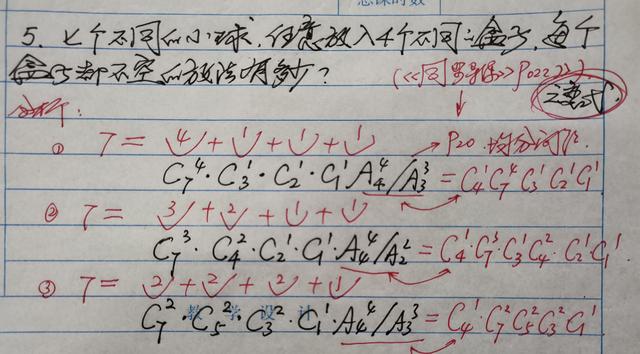 5. 七个不同的小球,任意放入4个不同的盒子,每个
盒子都不空的放法有多少?
分析:
① 7 = 4 + 1 + 1 + 1 → P20 均分问题.
C₇⁴·C₃¹·C₂¹·C₁¹A₄⁴/A₃³ = C₄¹C₇⁴C₃¹C₂¹C₁¹
② 7 = 3 + 2 + 1 + 1
C₇³·C₄²·C₂¹·C₁¹·A₄⁴/A₂² = C₄¹·C₇³·C₃¹C₄²·C₂¹C₁¹.
③ 7 = 2 + 2 + 2 + 1
教 学 设 计
C₇²·C₅²·C₃²·C₁¹·A₄⁴/A₃³ = C₄¹·C₇²C₅²C₃²C₁¹